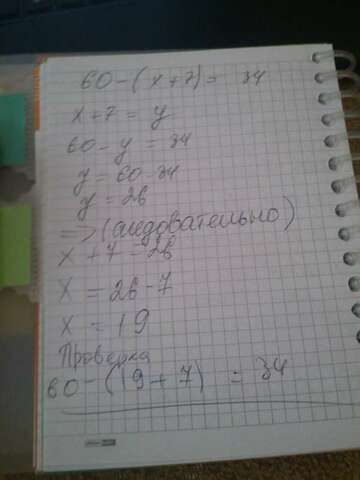 60-(x+7)= 34
x+7=y
60-y=34
y=60-34
y=26
=>(следовательно)
x+7-26
x=26-7
x=19
Проверка
60-(19+7)=34